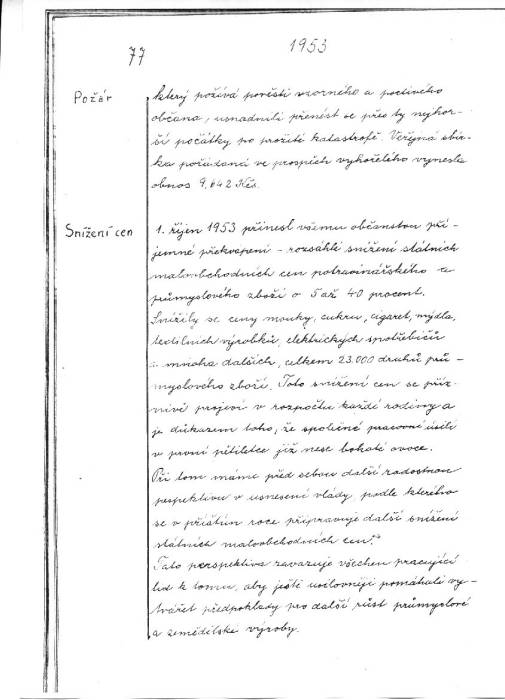 77
1953
Požár
který požívá pověsti vzorného a poctivého
občana, usnadnili přenést se přes ty nejhor-
ší počátky po prožité katastrofě. Veřejná sbír-
ka pořádaná ve prospěch vyhořelého vynesla
obnos 9.642 Kčs.
Snížení cen
1. říjen 1953 přinesl všemu občanstvu pří-
jemné překvapení - rozsáhlé snížení státních
maloobchodních cen potravinářského a
průmyslového zboží o 5 až 40 procent.
Snížily se ceny mouky, cukru, cigaret, mýdla,
textilních výrobků, elektrických spotřebičů
i mnoha dalších, celkem 23.000 druhů prů-
myslového zboží. Toto snížení cen se příz-
nivě projeví v rozpočtu každé rodiny a
je důkazem toho, že společné pracovní úsilí
v první pětiletce již nese bohaté ovoce.
Při tom máme před sebou další radostnou
perspektivu v usnesení vlády, podle kterého
se v příštím roce připravuje další snížení
státních maloobchodních cen.
Tato perspektiva zavazuje všechen pracující
lid k tomu, aby ještě usilovněji pomáhali vy-
tvářet předpoklady pro další růst průmyslové
a zemědělské výroby.